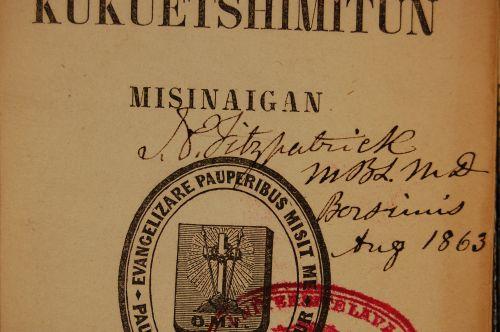 KUKUETSHIMITUN
MISINAIGAN
N. Fitzpatrick
M B L. M D
Borsimis
Aug 1863
EVANGELIZARE PAUPERIBUS MISIT ME
PAU
UR
O.M.V.